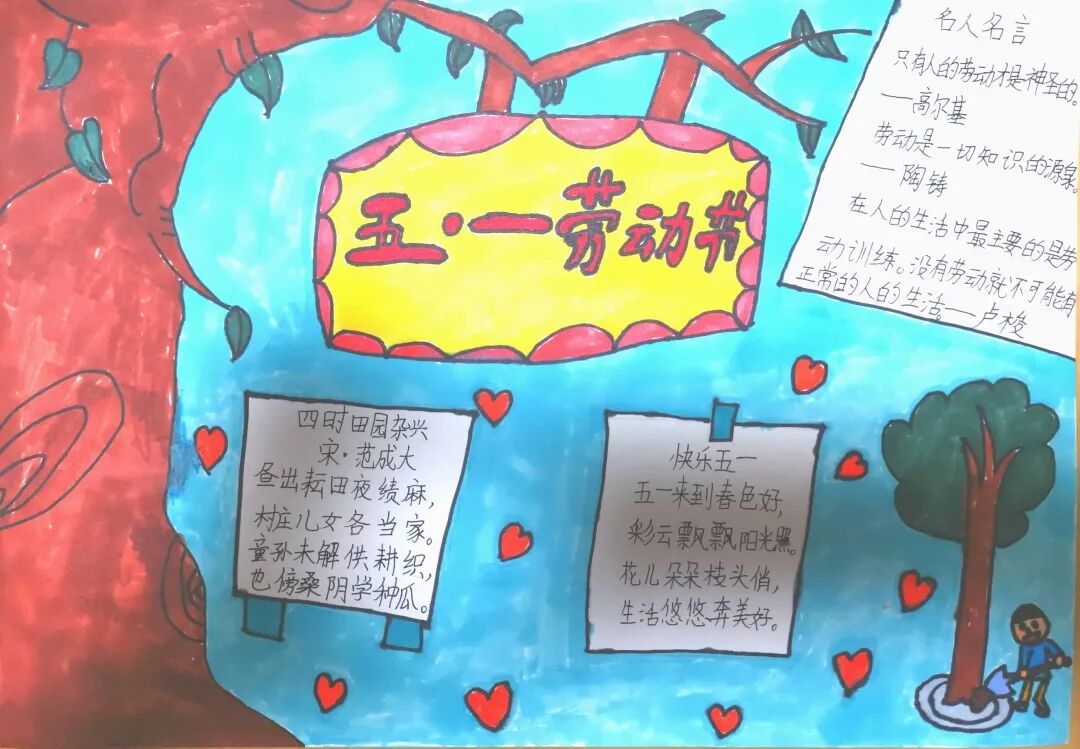 五·一劳动节
名人名言
只有人的劳动才是神圣的。
——高尔基
劳动是一切知识的源泉。
——陶铸
在人的生活中最主要的是劳
动训练。没有劳动就不可能有
正常的人的生活。——卢梭
四时田园杂兴
宋·范成大
昼出耘田夜绩麻，
村庄儿女各当家。
童孙未解供耕织，
也傍桑阴学种瓜。
快乐五一
五一来到春色好，
彩云飘飘阳光照。
花儿朵朵枝头俏，
生活悠悠奔美好。